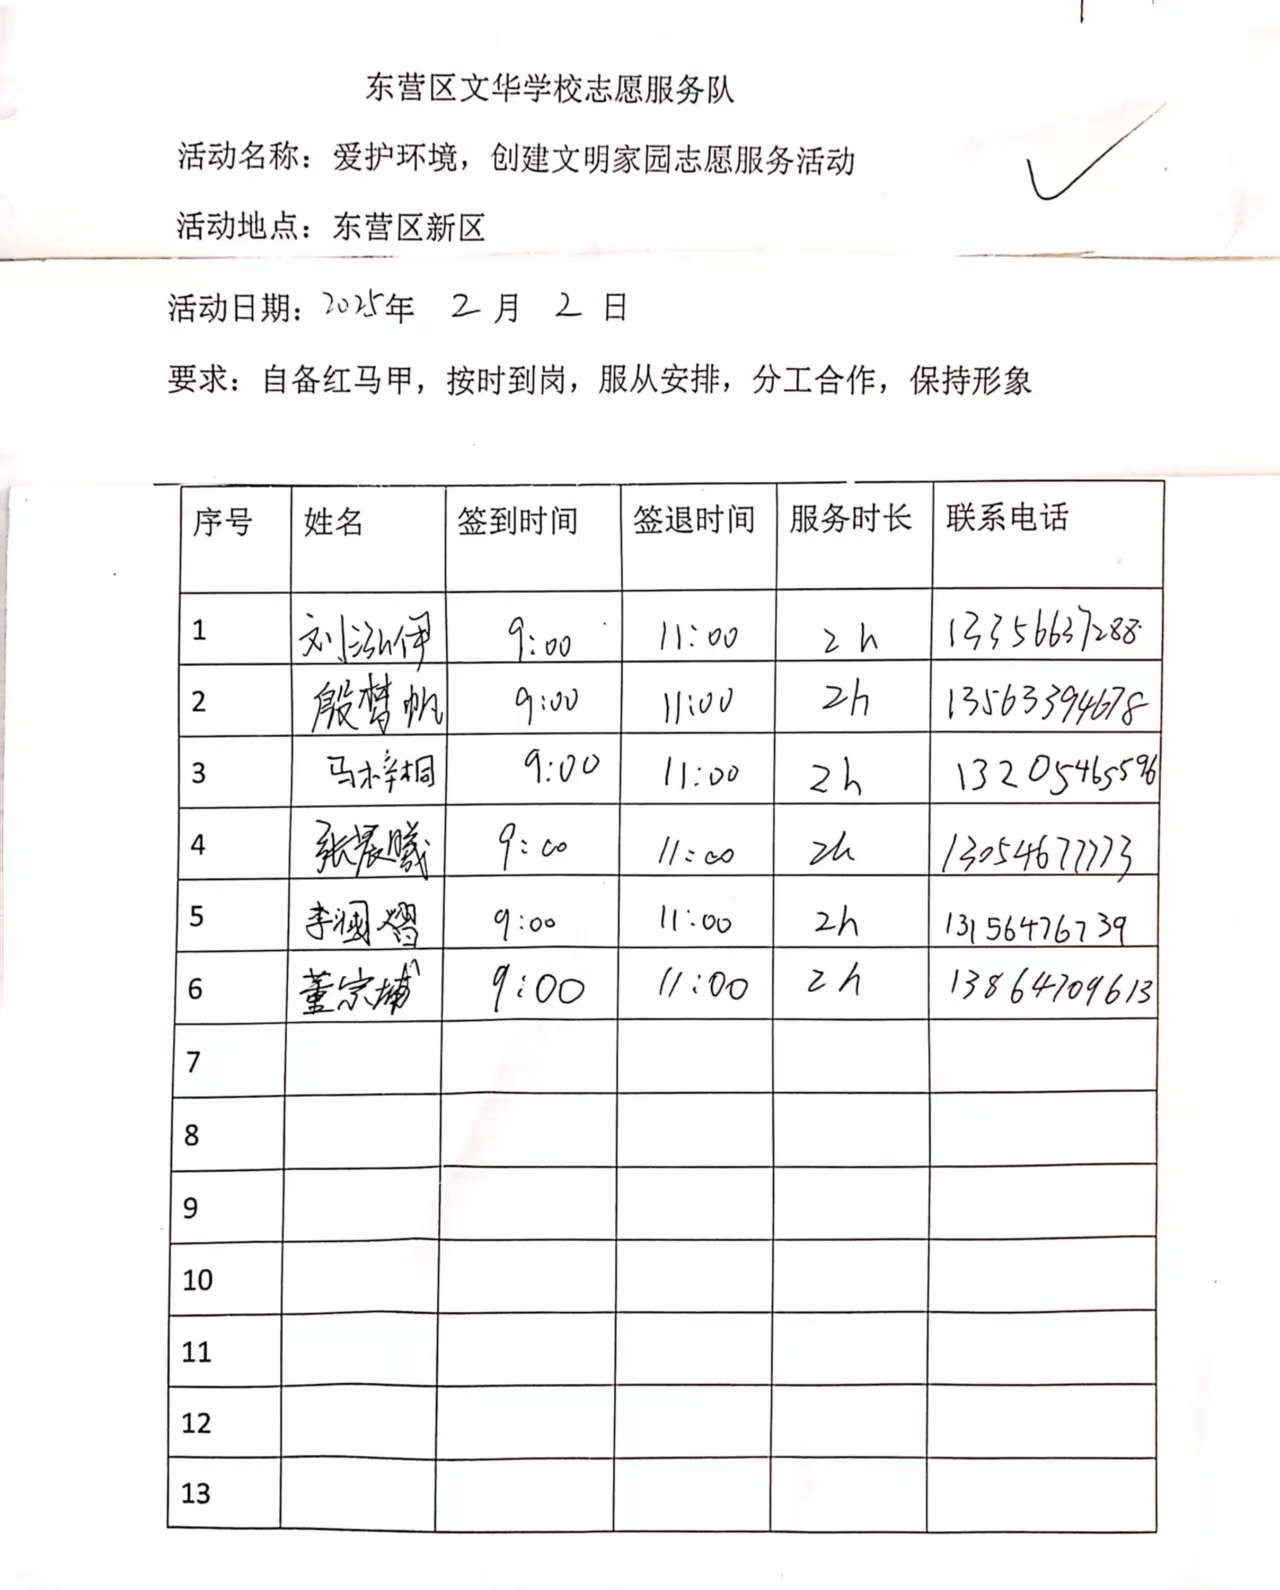 东营区文华学校志愿服务队
活动名称：爱护环境，创建文明家园志愿服务活动
活动地点：东营区新区
活动日期：2025年 2 月 2 日
要求：自备红马甲，按时到岗，服从安排，分工合作，保持形象
序号 姓名 签到时间 签退时间 服务时长 联系电话
1 刘泓伊 9:00 11:00 2h 13356637288
2 殷梦帆 9:00 11:00 2h 13563394678
3 马梓桐 9:00 11:00 2h 13205465596
4 张晨曦 9:00 11:00 2h 13054677773
5 李 熠 9:00 11:00 2h 13156476739
6 董宗埔 9:00 11:00 2h 13864709613
7
8
9
10
11
12
13